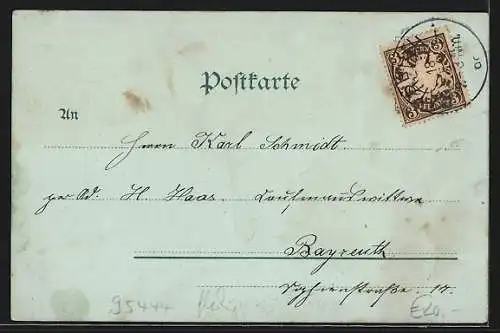 Postkarte
An
Herrn Karl Schmidt.
per Ad. H. Haas Kaufmannswittwe
Bayreuth
Sophienstraße 17.
95444